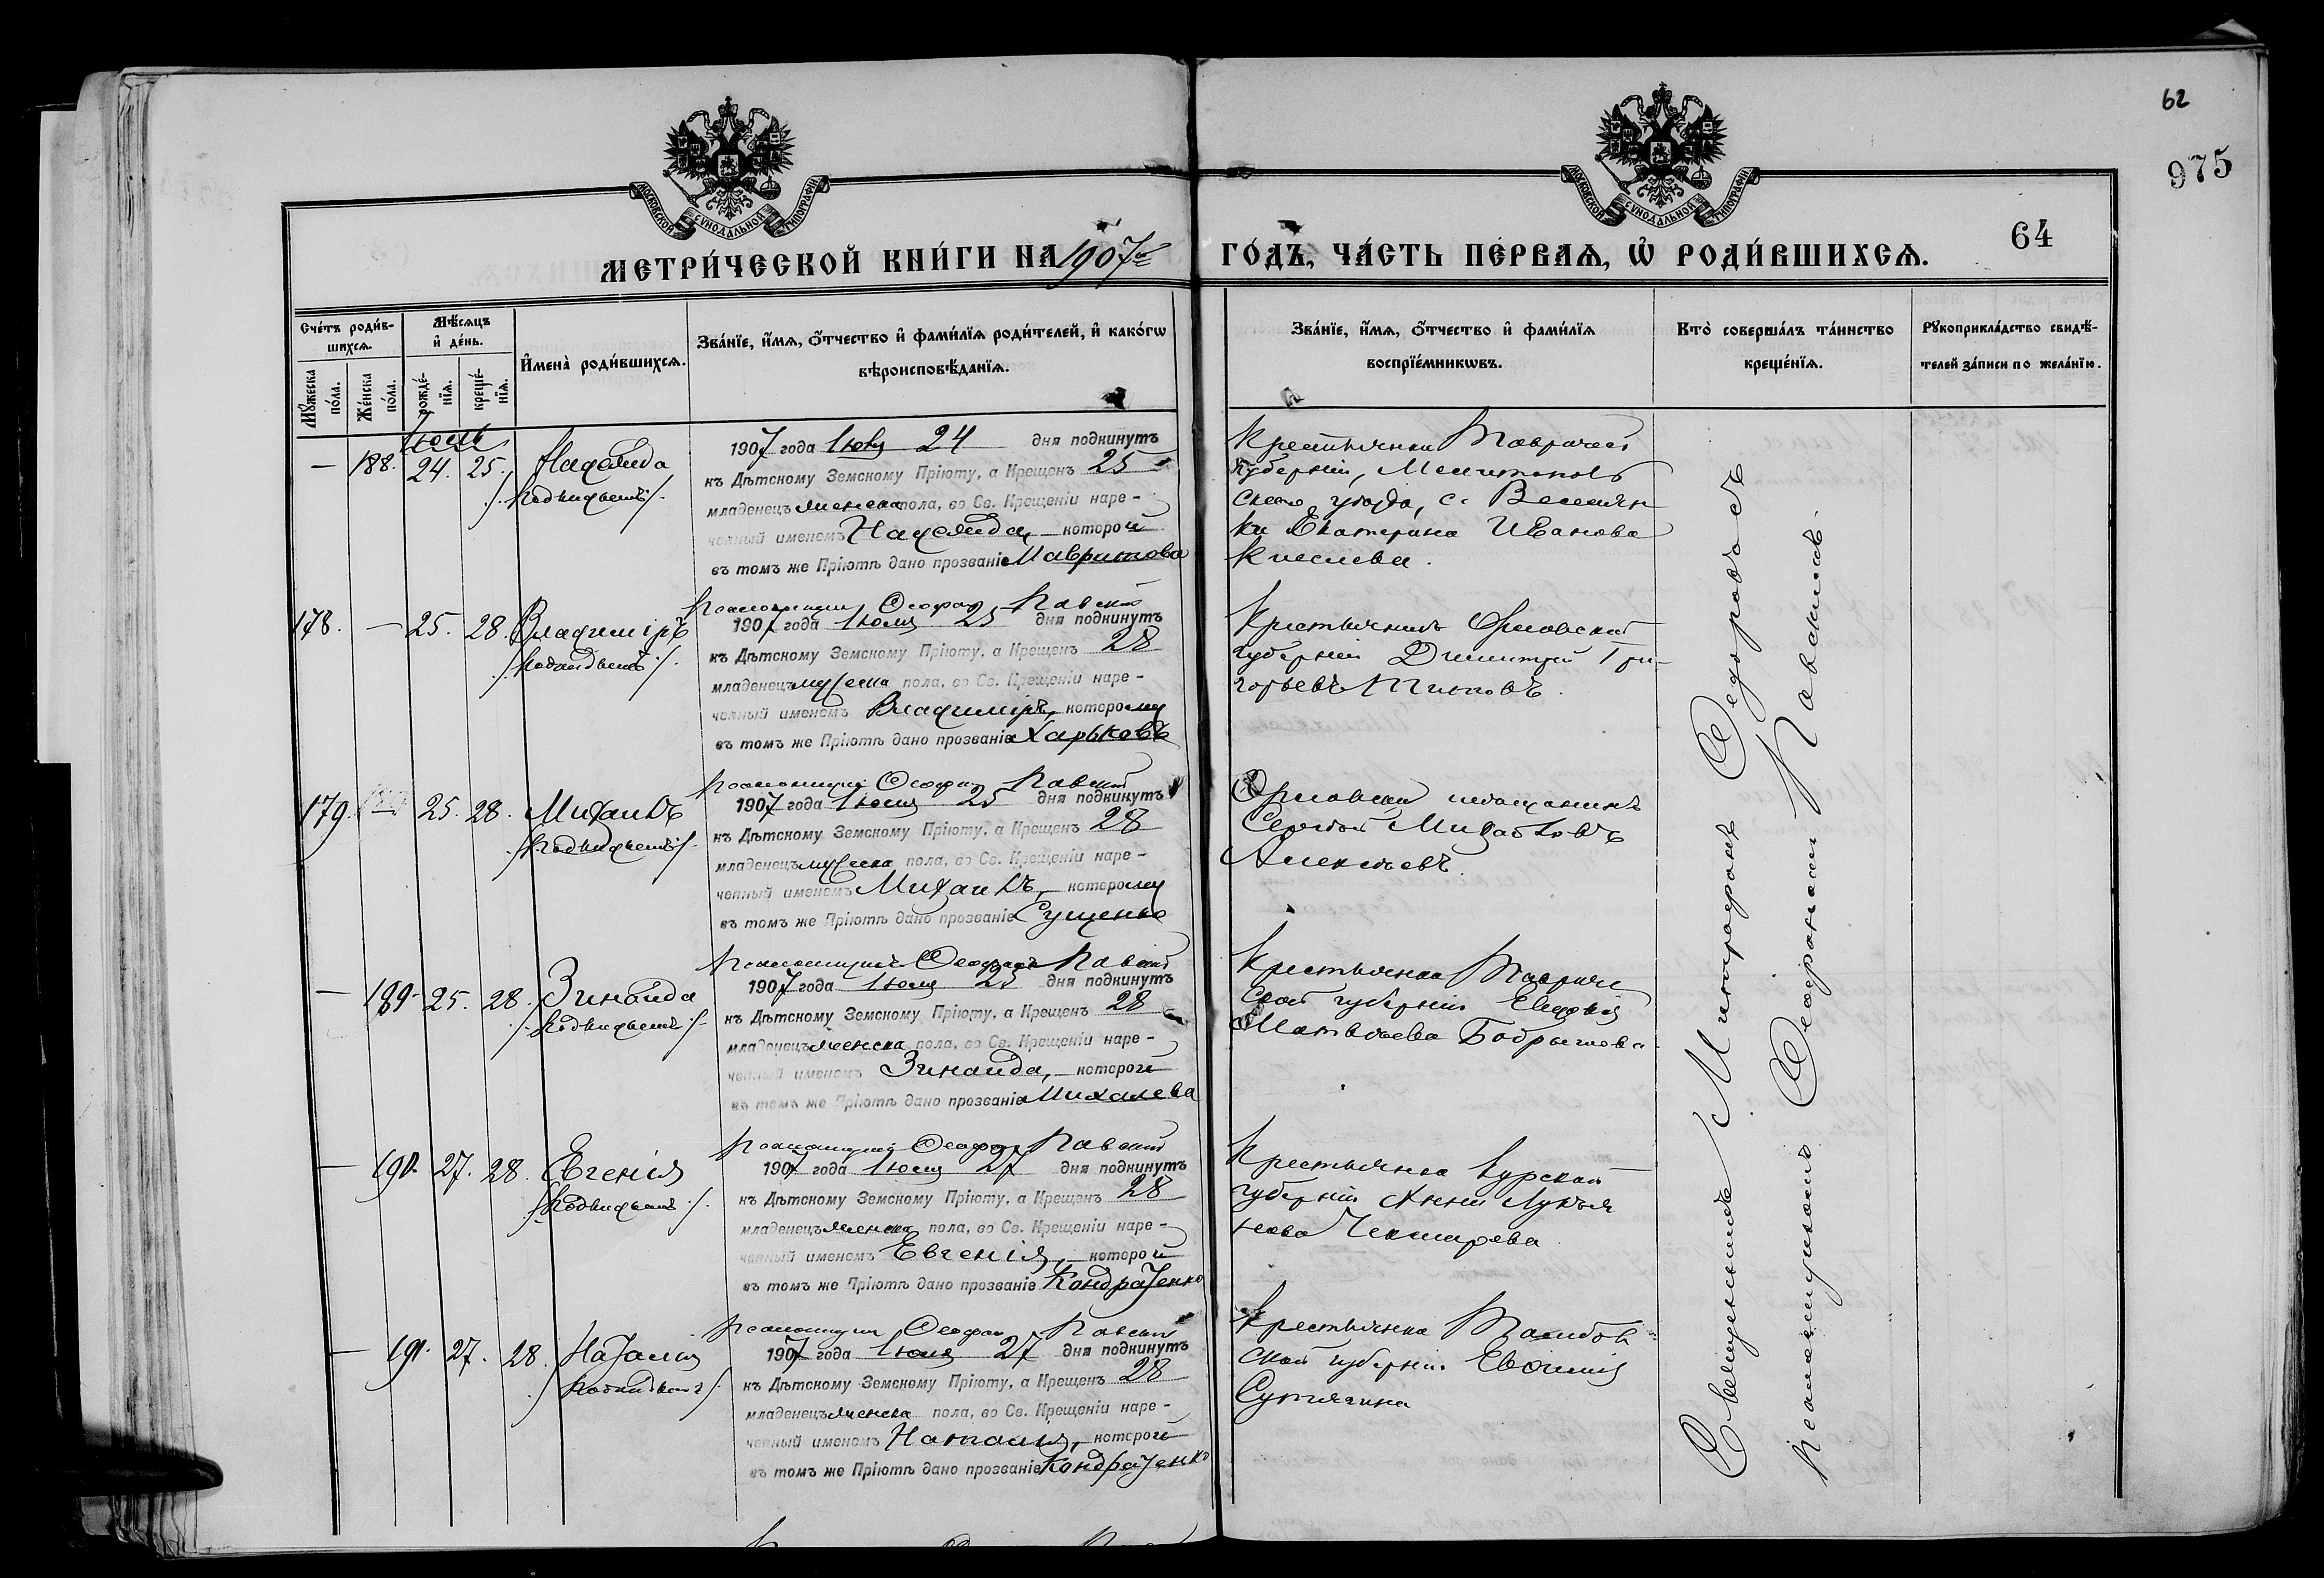 62
975
64
МОСКОВСКОЙ СѴНОДАЛЬНОЙ ТИПОГРАФІИ
МОСКОВСКОЙ СѴНОДАЛЬНОЙ ТИПОГРАФІИ
МЕТРИ́ЧЕСКОЙ КНИ́ГИ НА 1907й ГО́ДЪ, ЧА́СТЬ ПЕ́РВАѦ, Ѡ РОДИ́ВШИХСѦ.
Сче́тъ роди́в-
шихсѧ.
Мꙋ́жеска по́ла.
Же́нска по́ла.
Мѣ́сѧцъ и҆ де́нь.
рожде́-
нїѧ.
креще́-
нїѧ.
И҆мена̀ роди́вшихсѧ.
Зва́нїе, и҆́мѧ, ѻ҆́тчество и҆ фами́лїѧ роди́телей, и҆ како́гѡ
вѣроисповѣ́данїѧ.
Зва́нїе, и҆́мѧ, ѻ҆́тчество и҆ фами́лїѧ
воспрїе́мникѡвъ.
Кто̀ соверша́лъ та́инство
креще́нїѧ.
Рꙋкоприкла́дство свидѣ́-
телей за́писи по жела́нїю.
Іюль
— 188. 24. 25. Надежда
/Подкидышъ/.
1907 года Іюля 24 дня подкинутъ
къ Дѣтскому Земскому Пріюту, а Крещенъ 25
младенецъ женска пола, во Св. Крещеніи наре-
ченный именемъ Надежда, которой
въ томъ же Пріютѣ дано прозваніе Мавритова
Крестьянка Таврической
губерніи, Мелитополь
скаго уѣзда, с. Веселян
ки Екатерина Иванова
Киселева.
Псаломщикъ Ѳеофанъ Павскій
178. — 25. 28. Владиміръ
/Подкидышъ/.
1907 года Іюля 25 дня подкинутъ
къ Дѣтскому Земскому Пріюту, а Крещенъ 28
младенецъ мужеска пола, во Св. Крещеніи наре-
ченный именемъ Владиміръ, которому
въ томъ же Пріютѣ дано прозваніе Харьковъ
Крестьянинъ Орловской
губерніи Димитрій Гри-
горьевъ
Псаломщикъ Ѳеофанъ Павскій
179. — 25. 28. Михаилъ
/Подкидышъ/.
1907 года Іюля 25 дня подкинутъ
къ Дѣтскому Земскому Пріюту, а Крещенъ 28
младенецъ мужеска пола, во Св. Крещеніи наре-
ченный именемъ Михаилъ, которому
въ томъ же Пріютѣ дано прозваніе Сущенко
Орловскій мѣщанинъ
Сергѣй Михайловъ
Алексѣевъ.
Псаломщикъ Ѳеофанъ Павскій
— 189. 25. 28. Зинаида
/Подкидышъ/.
1907 года Іюля 25 дня подкинутъ
къ Дѣтскому Земскому Пріюту, а Крещенъ 28
младенецъ женска пола, во Св. Крещеніи наре-
ченный именемъ Зинаида, которой
въ томъ же Пріютѣ дано прозваніе Михалева
Крестьянка Тавриче
ской губерніи Евдокія
Матвѣева Бобрышова.
Псаломщикъ Ѳеофанъ Павскій
— 190. 27. 28. Евгенія
/Подкидышъ/.
1907 года Іюля 27 дня подкинутъ
къ Дѣтскому Земскому Пріюту, а Крещенъ 28
младенецъ женска пола, во Св. Крещеніи наре-
ченный именемъ Евгенія, которой
въ томъ же Пріютѣ дано прозваніе Кондратенко
Крестьянка Курской
губерніи Анна Лукья
нова
Псаломщикъ Ѳеофанъ Павскій
— 191. 27. 28. Наталія
/Подкидышъ/.
1907 года Іюля 27 дня подкинутъ
къ Дѣтскому Земскому Пріюту, а Крещенъ 28
младенецъ женска пола, во Св. Крещеніи наре-
ченный именемъ Наталія, которой
въ томъ же Пріютѣ дано прозваніе Кондратенко
Крестьянка Тамбов
ской губерніи Евфимія
Сутягина
Священникъ Митрофанъ Ѳедоровъ съ
псаломщикомъ Ѳеофаномъ Павскимъ.